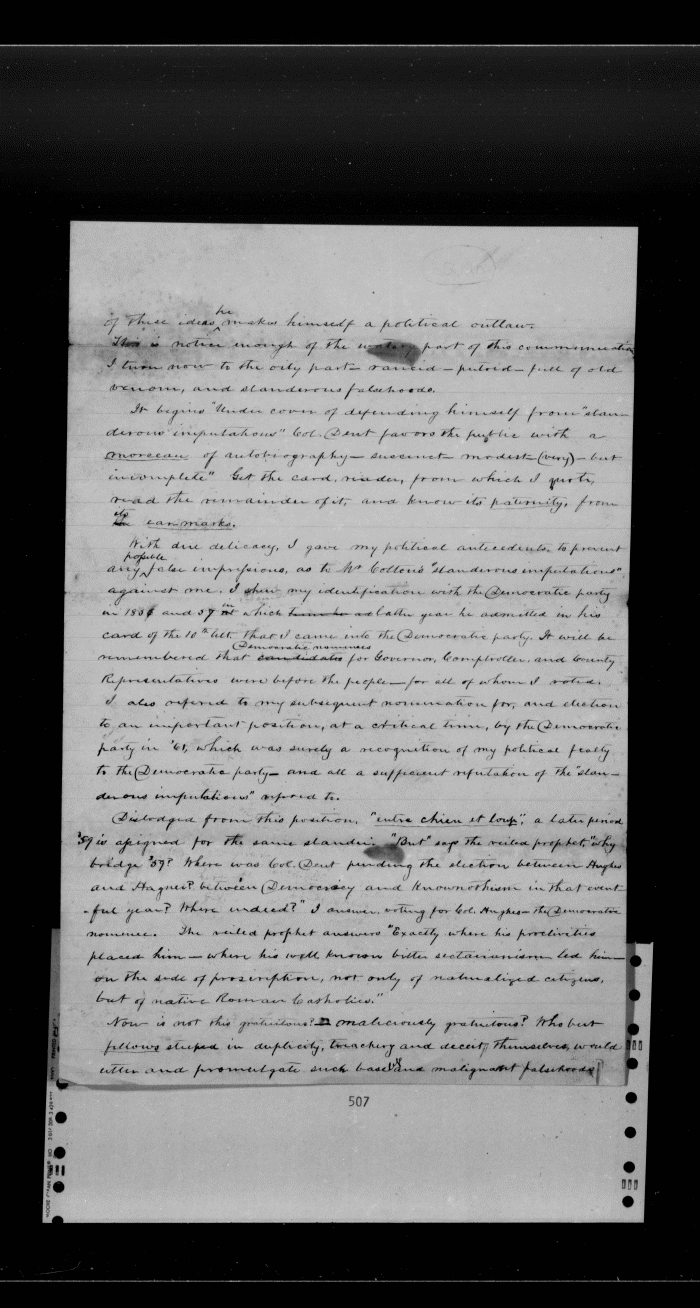 of these ideas, he makes himself a political outlaw.
This is notice enough of the watery part of this communication
I turn now to the oily part – rancid – putrid – full of old
venom, and slanderous falsehoods.
It begins "Under cover of defending himself from "slan-
derous imputations" Col. Dent favors the public with a
morceau of autobiography – succinct – modest – (very) – but
incomplete" Get the card, reader, from which I quote,
read the remainder of it, and know its paternity, from
its ear marks.
With due delicacy, I gave my political antecedents, to prevent
any possible false impressions, as to Mr Colton's "slanderous imputations"
against me. I shew my identification with the Democratic party
in 1856 and 57 in which latter year he admitted in his
card of the 10th that I came into the Democratic party. It will be
remembered that candidates Democratic nominees for Governor, Comptroller, and County
Representatives were before the people – for all of whom I voted.
I also referred to my subsequent nomination for, and election
to an important position, at a critical time, by the Democratic
party in '61, which was surely a recognition of my political fealty
to the Democratic party – and all a sufficient refutation of the "slan-
derous imputations" referred to.
Dislodged from this position, "entre chien et loup", a later period
'59 is assigned for the same slander. "But" says the veiled prophet, "why
bridge '59? Where was Col. Dent pending the election between Hughes
and Hagner? between Democracy and Knownothism in that event-
-ful year? Where indeed?" I answer, voting for Col. Hughes – the Democratic
nominee. The veiled prophet answers "Exactly where his proclivities
placed him – where his well known bitter sectarianism led him –
on the side of proscription, not only of naturalized citizens,
but of native Roman Catholics."
Now is not this gratuitous? – maliciously gratuitous? Who but
fellows steeped in duplicity, treachery and deceit, themselves, would
utter and promulgate such base and malignant falsehoods!
507